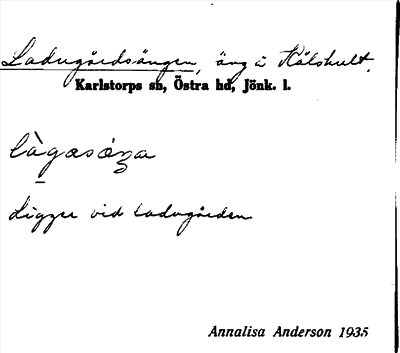 Ladugårdsängen, äng å Kålshult.
Karlstorps sn, Östra hd, Jönk. l.
Ligger vid ladugården
Annalisa Anderson 1935